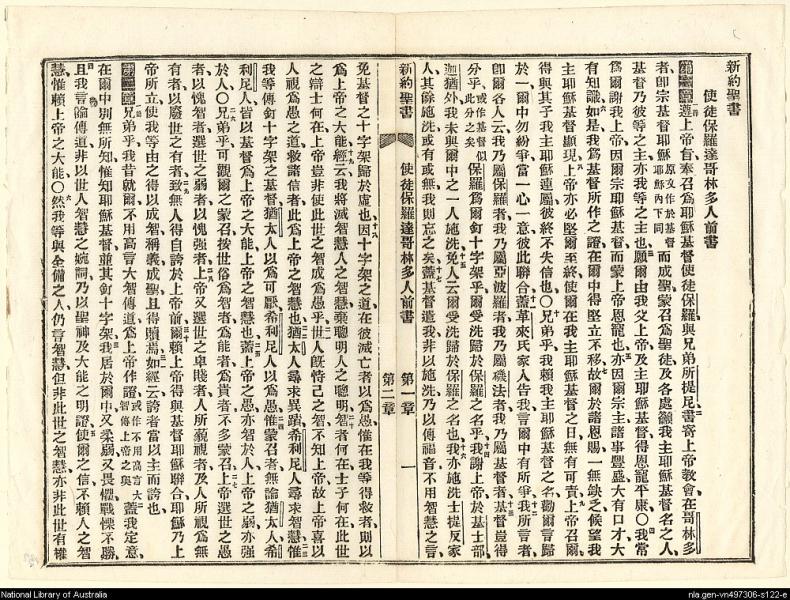 新約聖書
使徒保羅達哥林多人前書
第一章遵上帝旨奉召爲耶穌基督使徒保羅與兄弟所提尼書寄上帝教會在哥林多
者卽宗基督耶穌原文作於基督耶穌內下同而成聖蒙召爲聖徒及各處籲我主耶穌基督名之人
基督乃彼等之主亦我等之主也願爾由我父上帝及主耶穌基督得恩寵平康○我常
爲爾謝我上帝因爾宗耶穌基督而蒙上帝恩寵也亦因爾宗主諸事豐盛大有口才大
有知識如是我爲基督所作之證在爾中得堅立不移故爾於諸恩賜一無缺乏候望我
主耶穌基督顯現上帝亦必堅爾至終使爾在我主耶穌基督之日無有可責上帝召爾
得與其子我主耶穌連屬彼終不失信也○兄弟乎我賴我主耶穌基督之名勸爾言歸
於一爾中勿紛爭當一心一意彼此聯合蓋革來氏家人告我言爾中有所爭我所言者
卽爾各人云我乃屬保羅者我乃屬亞波羅者我乃屬磯法者我乃屬基督者基督豈得
分乎或作基督似此分之矣保羅爲爾釘十字架乎爾受洗歸於保羅之名乎我謝上帝於基士部
迦猶外我未與爾中之一人施洗免人云爾受洗歸於保羅之名也我亦施洗士提反家
人其餘施洗或有或無我則忘之矣蓋基督遣我非以施洗乃以傳福音不用智慧之言
新約聖書 使徒保羅達哥林多人前書 第一章 第二章 一
免基督之十字架歸於虛也因十字架之道在彼滅亡者以爲愚惟在我等得救者則以
爲上帝之大能經云我將滅智慧人之智慧棄聰明人之聰明智者何在士子何在此世
之辯士何在上帝豈非使此世之智成爲愚乎世人旣恃己之智不知上帝故上帝喜以
人視爲愚之道救諸信者此爲上帝之智慧也猶太人尋求異蹟希利尼人尋求智慧惟
我等傳釘十字架之基督猶太人以爲可厭希利尼人以爲愚惟蒙召者無論猶太人希
利尼人皆以基督爲上帝之大能上帝之智慧也蓋上帝之愚亦智於人上帝之弱亦强
於人○兄弟乎可觀爾之蒙召按世俗爲智者爲能者爲貴者不多蒙召上帝選世之愚
者以愧智者選世之弱者以愧强者上帝又選世之卑賤者人所藐視者及人所視爲無
有者以廢世之有者致無人得自誇於上帝前爾賴上帝得與基督耶穌聯合耶穌乃上
帝所立使我等由之得以成智稱義成聖且得贖焉如經云誇者當以主而誇也
第二章兄弟乎我昔就爾不用高言大智傳道爲上帝作證或作不用高言大智傳上帝之奧蓋我定意
在爾中別無所知惟知耶穌基督並其釘十字架我居於爾中又柔弱又畏懼戰慄不勝
且我言論傳道非以世人智慧之婉詞乃以聖神及大能之明證使爾之信不賴人之智
慧惟賴上帝之大能○然我等與全備之人仍言智慧但非此世之智慧亦非此世有權
National Library of Australia
nla.gen-vn497306-s122-e